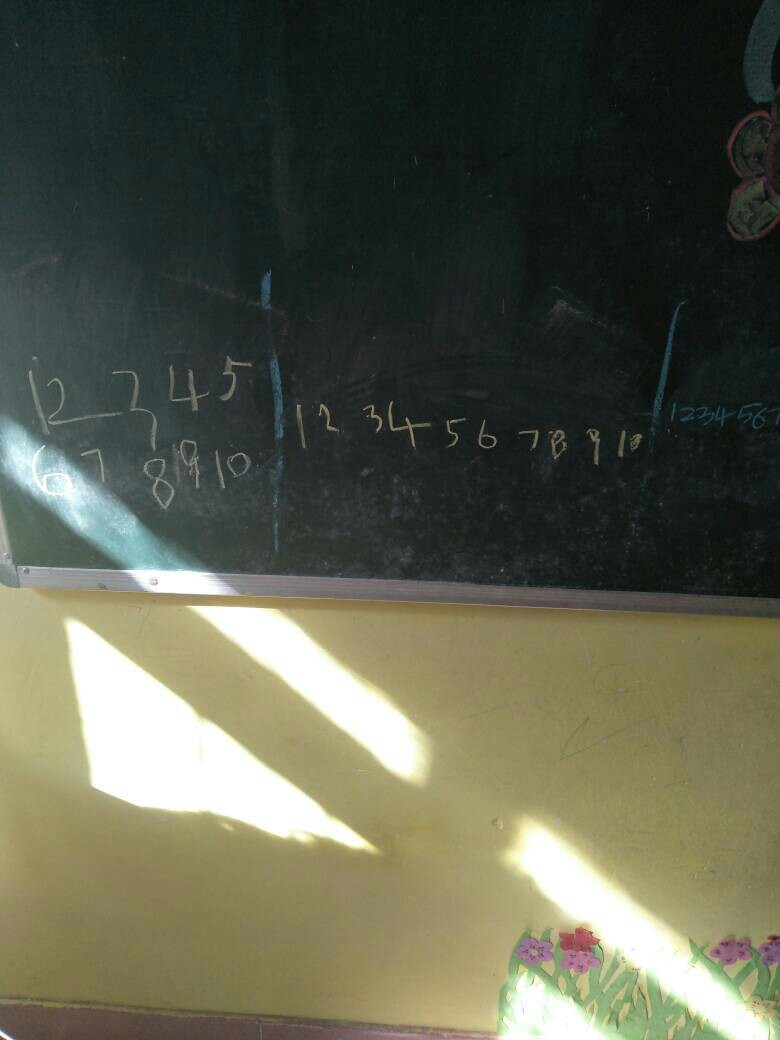 1 2 3 4 5
6 7 8 9 10
1 2 3 4 5 6 7 8 9 10
1 2 3 4 5 6 7